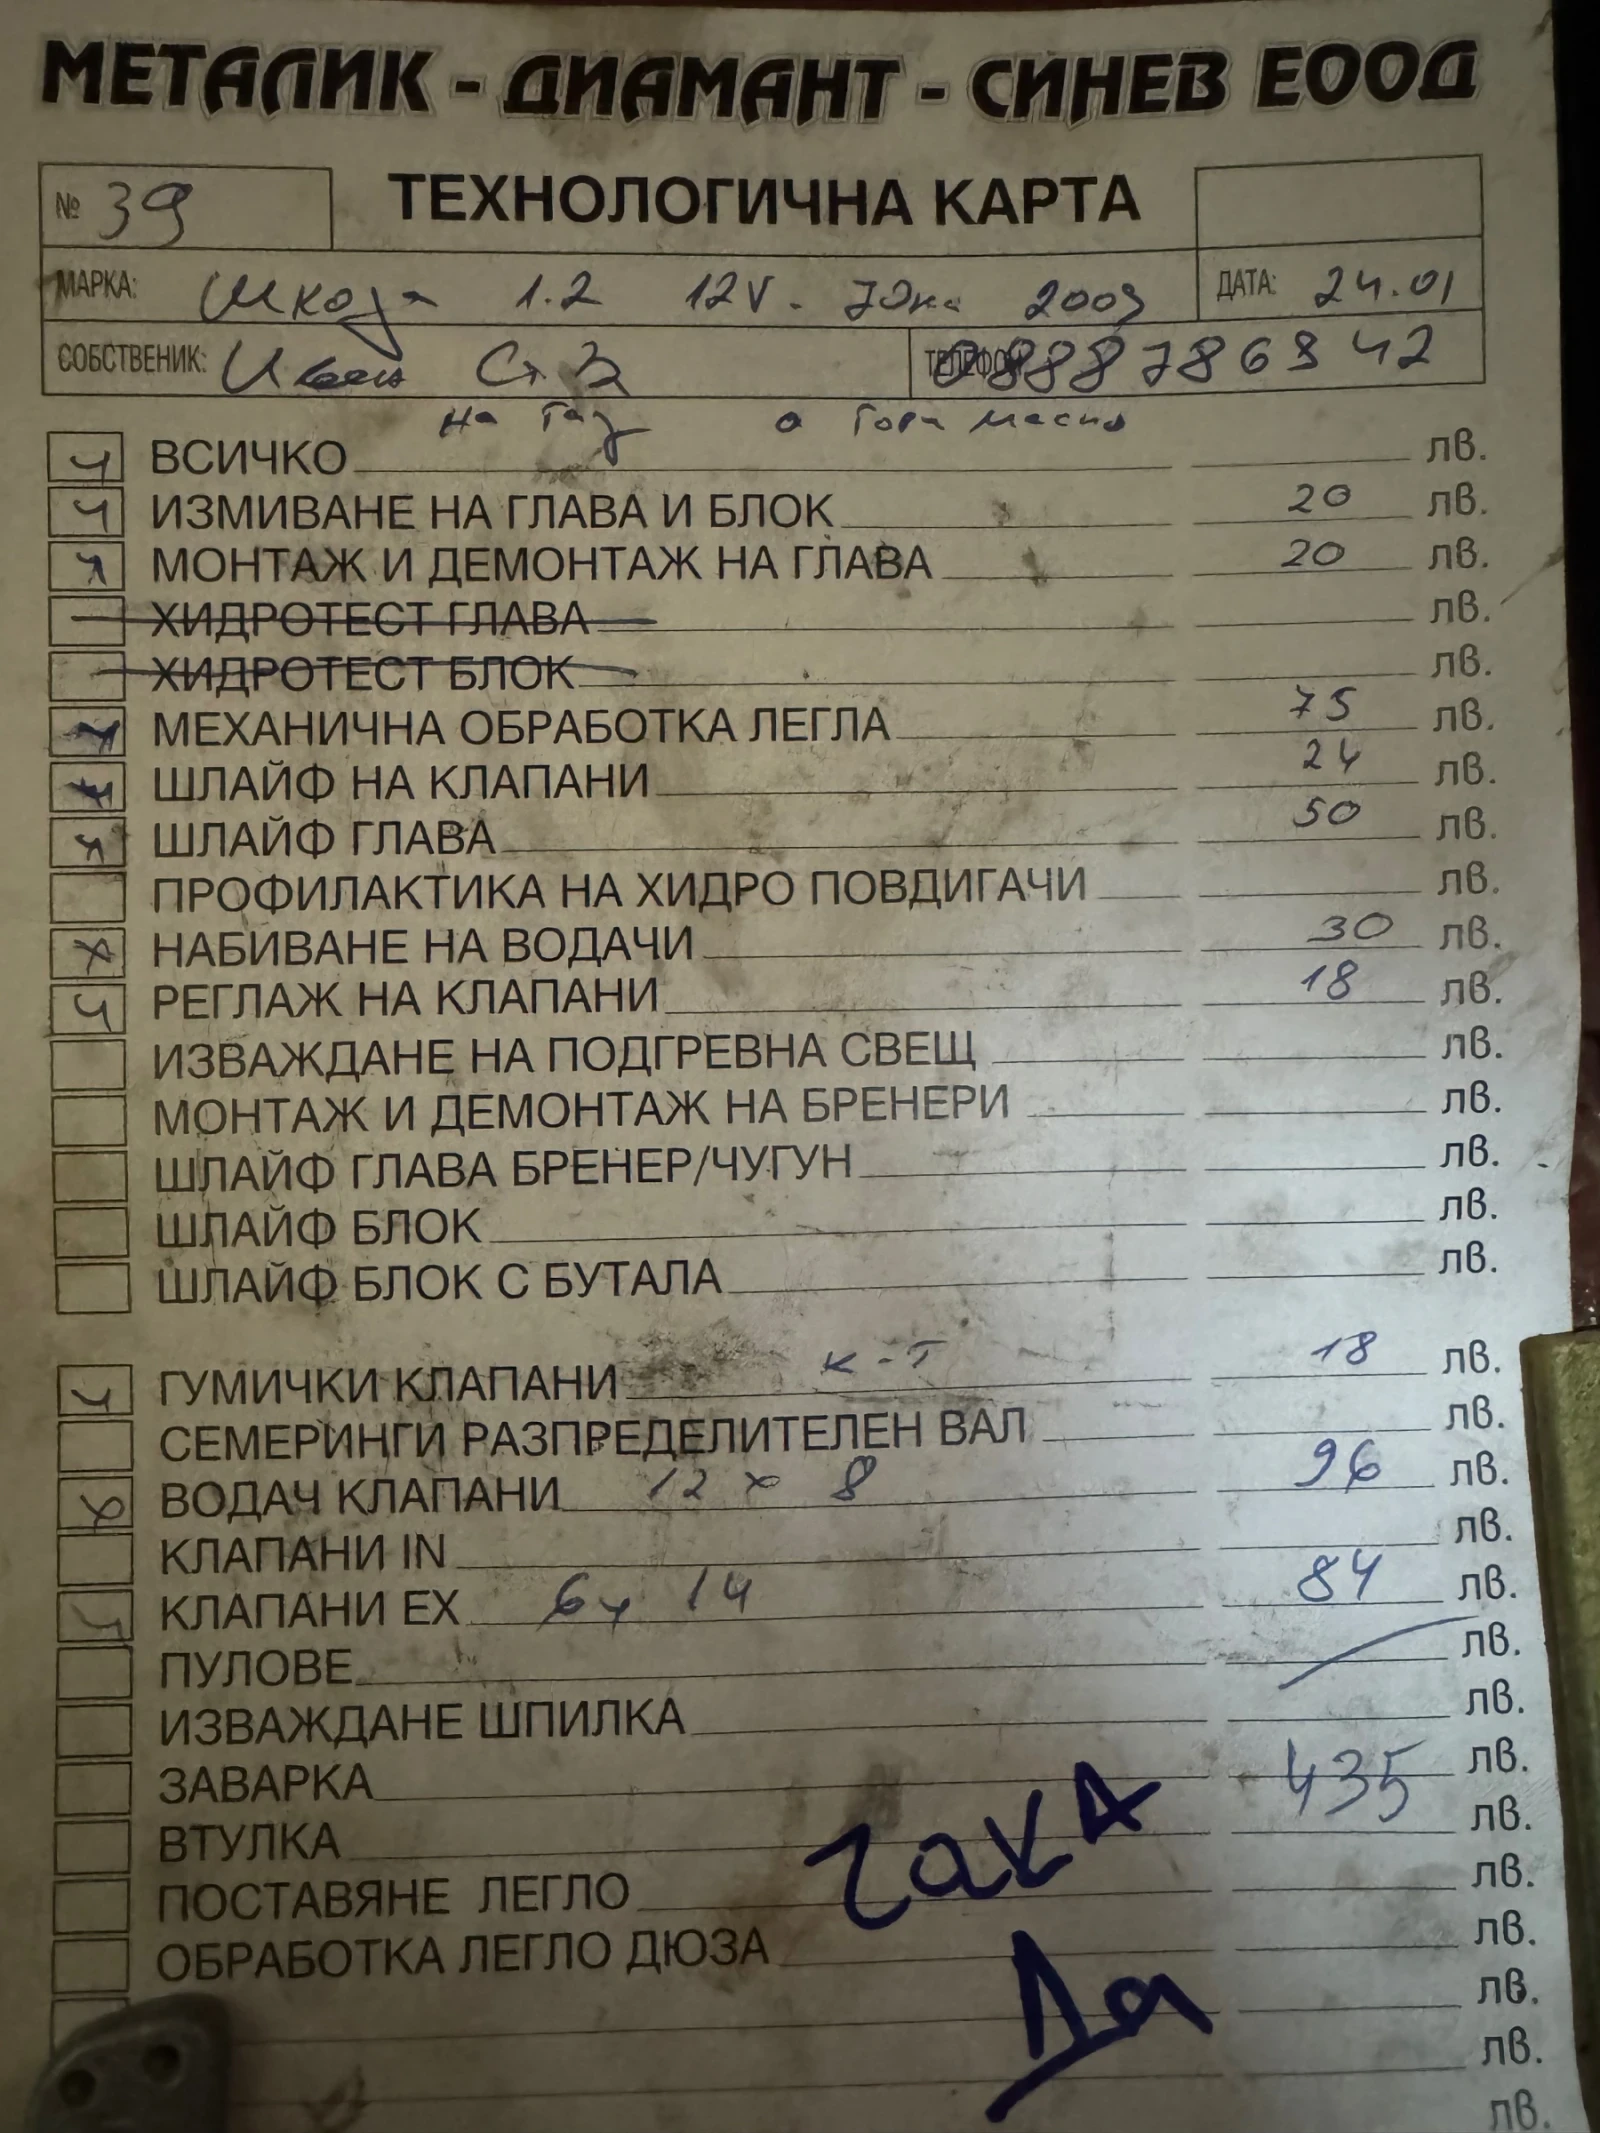 МЕТАЛИК - ДИАМАНТ - СИНЕВ ЕООД
№ 39 ТЕХНОЛОГИЧНА КАРТА
МАРКА: Шкода 1.2 12V. 2009 ДАТА: 24.01
СОБСТВЕНИК: Иван Ст ТЕЛЕФОН 0888786942
на газ гори масло
ВСИЧКО лв.
ИЗМИВАНЕ НА ГЛАВА И БЛОК 20 лв.
МОНТАЖ И ДЕМОНТАЖ НА ГЛАВА 20 лв.
ХИДРОТЕСТ ГЛАВА лв.
ХИДРОТЕСТ БЛОК лв.
МЕХАНИЧНА ОБРАБОТКА ЛЕГЛА 75 лв.
ШЛАЙФ НА КЛАПАНИ 24 лв.
ШЛАЙФ ГЛАВА 50 лв.
ПРОФИЛАКТИКА НА ХИДРО ПОВДИГАЧИ лв.
НАБИВАНЕ НА ВОДАЧИ 30 лв.
РЕГЛАЖ НА КЛАПАНИ 18 лв.
ИЗВАЖДАНЕ НА ПОДГРЕВНА СВЕЩ лв.
МОНТАЖ И ДЕМОНТАЖ НА БРЕНЕРИ лв.
ШЛАЙФ ГЛАВА БРЕНЕР/ЧУГУН лв.
ШЛАЙФ БЛОК лв.
ШЛАЙФ БЛОК С БУТАЛА лв.
ГУМИЧКИ КЛАПАНИ к-т 18 лв.
СЕМЕРИНГИ РАЗПРЕДЕЛИТЕЛЕН ВАЛ лв.
ВОДАЧ КЛАПАНИ 12 x 8 96 лв.
КЛАПАНИ IN лв.
КЛАПАНИ EX 6x 14 84 лв.
ПУЛОВЕ лв.
ИЗВАЖДАНЕ ШПИЛКА лв.
ЗАВАРКА 435 лв.
ВТУЛКА лв.
ПОСТАВЯНЕ ЛЕГЛО чака лв.
ОБРАБОТКА ЛЕГЛО ДЮЗА лв.
Да лв.
лв.
лв.